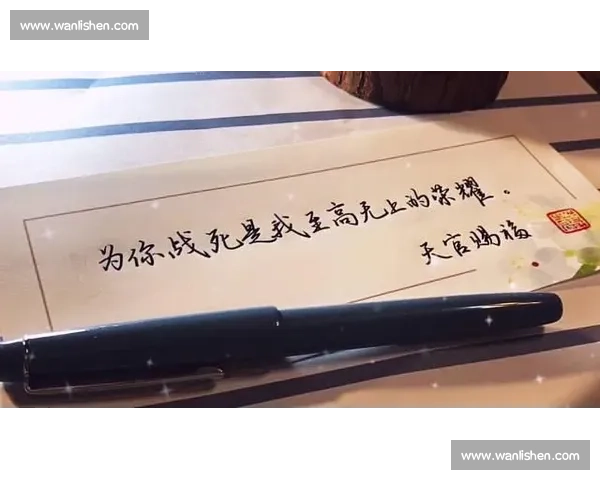 www.wanlishen.com
为你战死是我至高无上的荣耀。
天官赐福
www.wanlishen.com